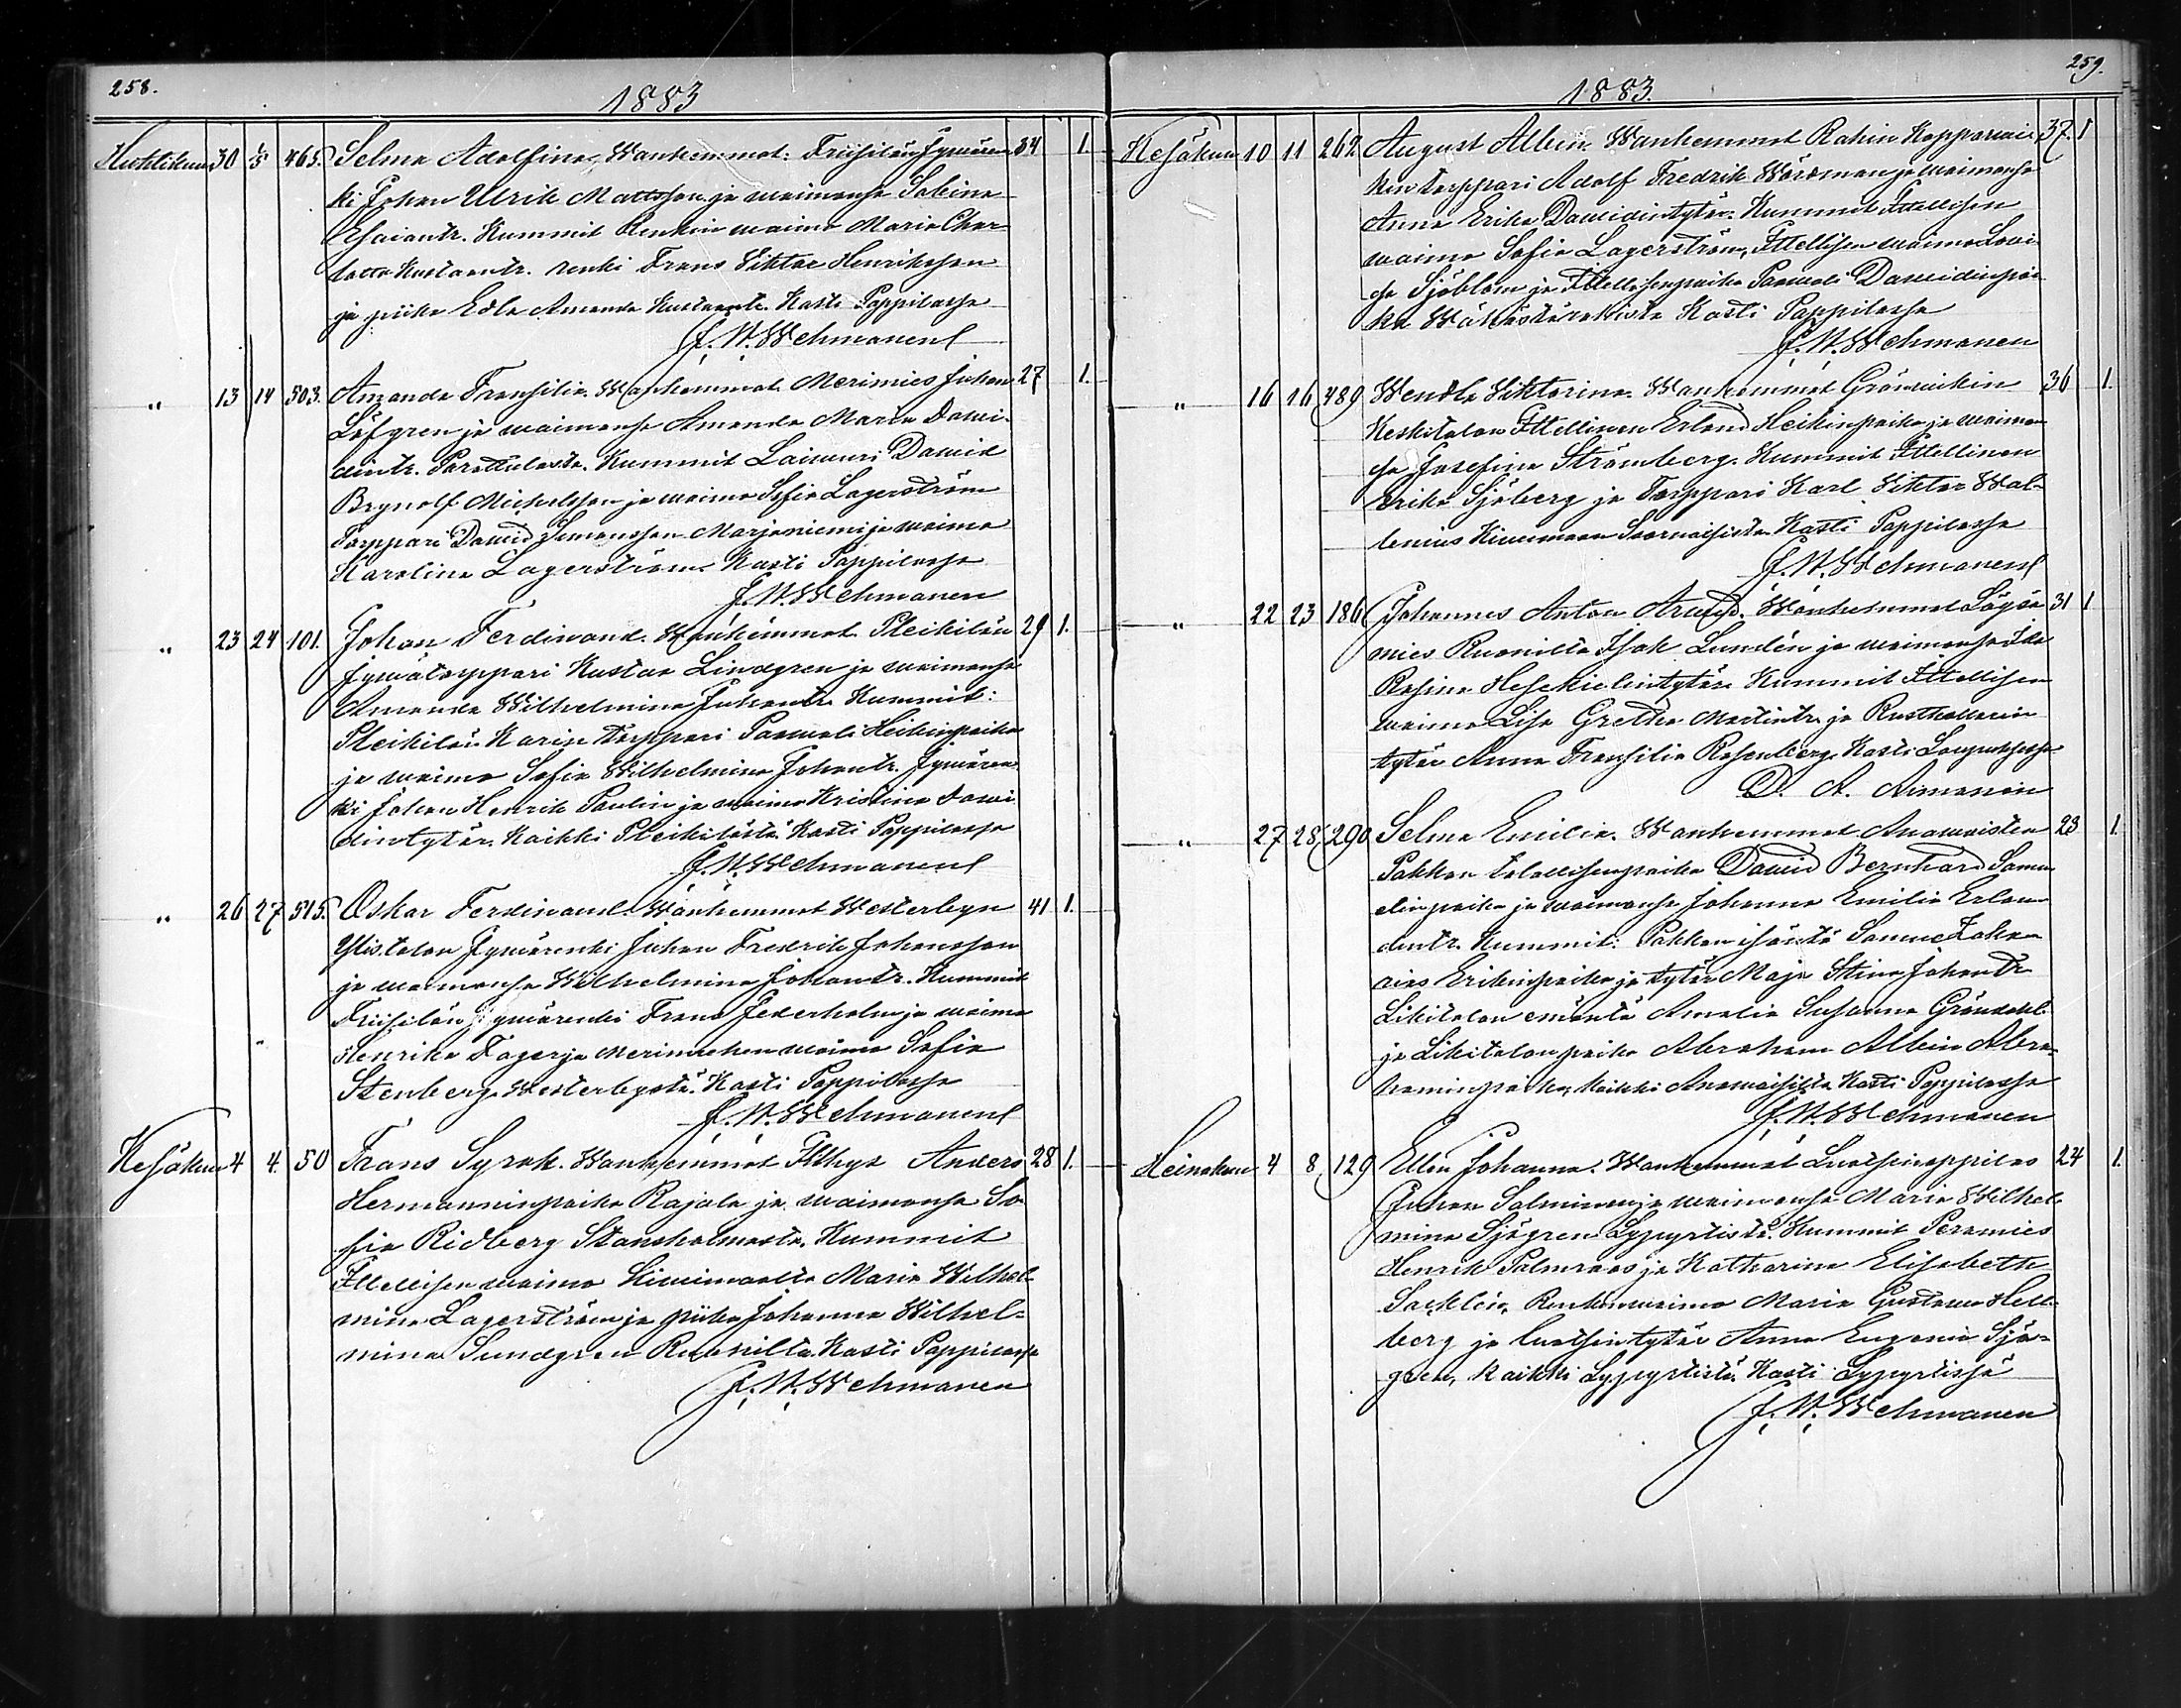 258.
1883
Huhtikuu 30 1/5 465. Selma Adolfina. Wanhemmat: Friisilän Jywären- 34 1.
ki Johan Ulrik Mattsson ja waimonsa Sabina
Esaiantr. Kummit Renkin waimo Maria Char-
lotta Kustaantr. renki Frans Viktor Henriksson
ja piika Edla Amanda Kustaantr. Kasti Pappilassa
J. W. Wehmanen
" 13 14 503. Amanda Fransilia. Wanhemmat Merimies Johan 27 1.
Löfgren ja waimonsa Amanda Maria Dawi-
dintr. Parattulasta. Kummit Laiwuri Dawid
Brynolf Michelsson ja waimo Sofia Lagerström
Torppari Dawid Simonsson Marjaniemi ja waimo
Karolina Lagerström. Kasti Pappilassa
J. W. Wehmanen
" 23 24 101. Johan Ferdinand. Wanhemmat Pleikilän 29 1.
Jywätorppari Kustaa Lindgren ja waimonsa
Amanda Wilhelmina Juhantr. Kummit:
Pleikilän Karin torppari Paawali Heikinpoika
ja waimo Sofia Wilhelmina Johantr. Jywären-
ki Johan Henrik Paulin ja waimo Kristina Dawi
dintytär. Kaikki Pleikilästä. Kasti Pappilassa
J. W. Wehmanen
" 26 27 515. Oskar Ferdinand. Wanhemmat Westerbyn 41 1.
Ylistalon Jywärenki Juhan Fredrik Johansson
ja waimonsa Wilhelmina Johantr. Kummit
Friisilän Jywärenki Frans Federholm ja waimo
Henrika Fager ja merimiehen waimo Sofia
Stenberg Westerbystä. Kasti Pappilassa
J. W. Wehmanen
Kesäkuu 4 4. 50 Frans Syrak. Wanhemmat Anders 28 1.
Hermanninpoika Rajala ja waimonsa So
fia Ridberg Stansholmasta. Kummit
Ittellisen waimo Kiwimaalta Maria Wilhel-
mina Lagerström ja piika Johanna Wilhel-
mina Sundgren Ruonilta. Kasti Pappilassa
J. W. Wehmanen
259.
1883.
Kesäkuu 10 11 262 August Albin. Wanhemmat Rahin Kopparwai- 37. 1
nion torppari Adolf Fredrik Wärdman ja waimonsa
Anna Erika Dawidintytär. Kummit Ittellisen
waimo Sofia Lagerström, Ittellisen waimo Lowi-
sa Sjöblom ja Ittellisenpoika Paawali Dawidinpoi-
ka Kasti Pappilassa
J. W. Wehmanen
" 16 16 489 Wendla Viktorina. Wanhemmat Grönwikin 36 1.
Keskitalon Ittellinen Erland Heikinpoika ja waimon-
sa Josefina Strömberg. Kummit Ittellinen
Erika Sjöberg ja Torppari Karl Viktor Wal-
lenius Kiwimaan Saarnaisista. Kasti Pappilassa
J. W. Wehmanen
" 22 23 186 Johannes Anton Arwid. Wanhemmat Löysä 31 1
mies Ruonilta Isak Lundén ja waimonsa Ida
Rosina Hesekielintytär. Kummit Ittellisen
waimo Lisa Gretha Martintr. ja Rusthollarin
tytär Anna Fransilia Rosenberg. Kasti Laupusissa
D. A. Aimanin
" 27 28 290 Selma Emilia. Wanhemmat Anawaisten 23 1.
Pakkan talollisenpoika Dawid Bernhard Samu
elinpoika ja waimonsa Johanna Emilia Erlan-
dintr. Kummit: Pakkan isäntä Samuel Zaka-
rias Erikinpoika ja tytär Maja Stina Johantr.
Likitalon emäntä Amalia Susanna Gröndahl
ja Likitalon poika Abraham Albin Abra-
haminpoika, kaikki Anawaisilta Kasti Pappilassa
J. W. Wehmanen
Heinäkuu 4 8 129 Ellen Johanna. Wanhemmat Luotsioppilas 24 1.
Juhan Salminen ja waimonsa Maria Wilhel
mina Sjögren Lypyrtistä. Kummit Perämies
Henrik Palmroos ja Katharina Elisabeth
Säcklén, Renkinwaimo Maria Gustawa Hell-
berg ja luotsintytär Anna Eugenia Sjö-
gren, kaikki Lypyrtistä. Kasti Lypyrtissä
J. W. Wehmanen